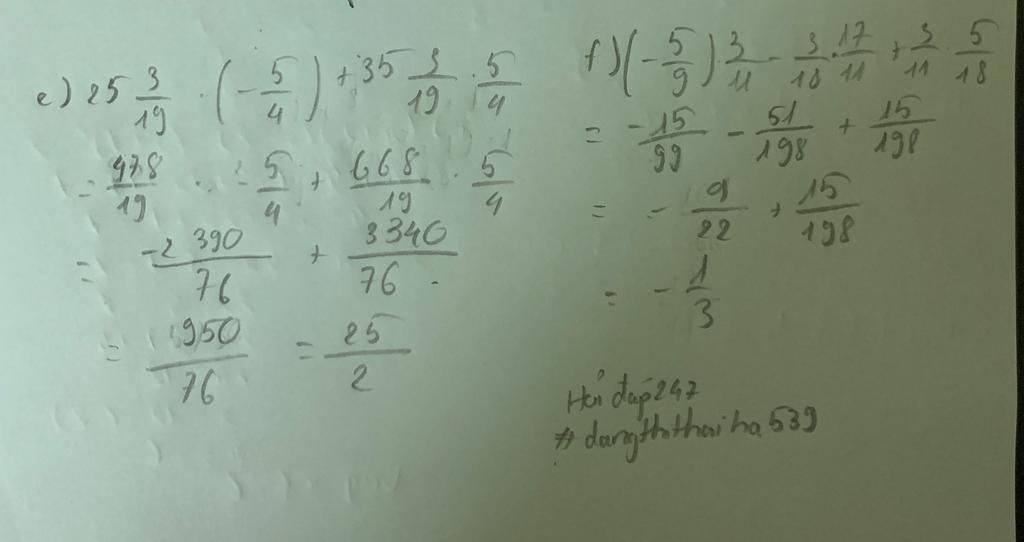 e) 25 3/19 . (- 5/4) + 35 3/19 . 5/4
= 478/19 . - 5/4 + 668/19 . 5/4
= -2390/76 + 3340/76 .
= 950/76 = 25/2
f) (- 5/9) . 3/11 - 3/18 . 17/11 + 3/11 . 5/18
= - 15/99 - 51/198 + 15/198
= - 9/22 + 15/198
= - 1/3
Hỏi đáp 247
# dangthithaiha539